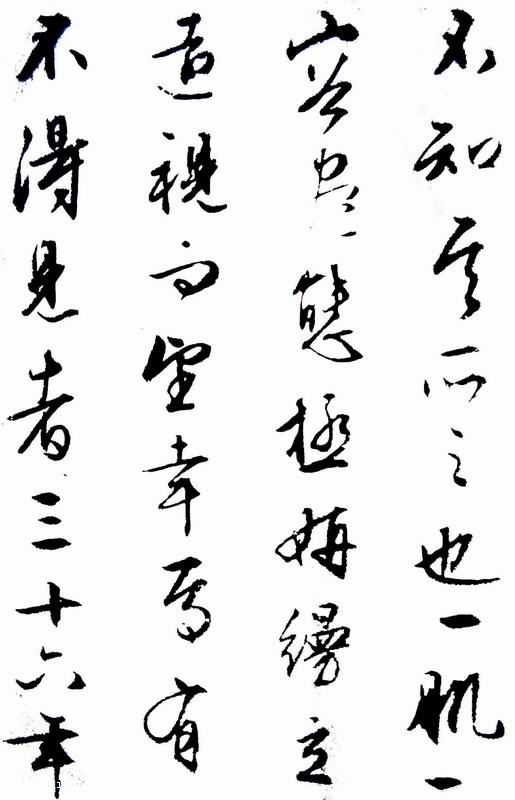 不知其所之也一肌一
容盡態極妍縵立
遠視而望幸焉有
不得見者三十六年